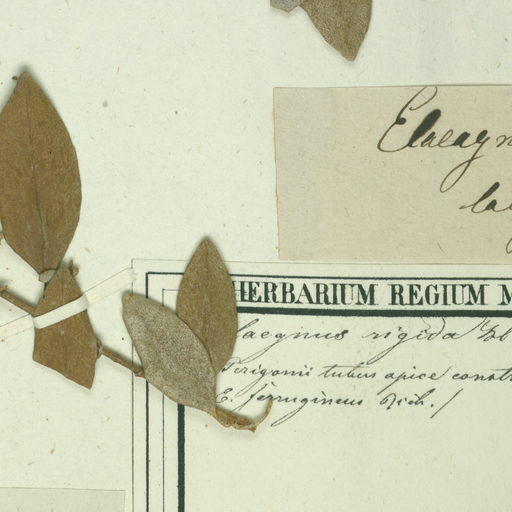 Elaeagn
la
HERBARIUM REGIUM M
laegnus rigida Bl
Perigonii tubus apice constr
E. ferrugineus Rich.